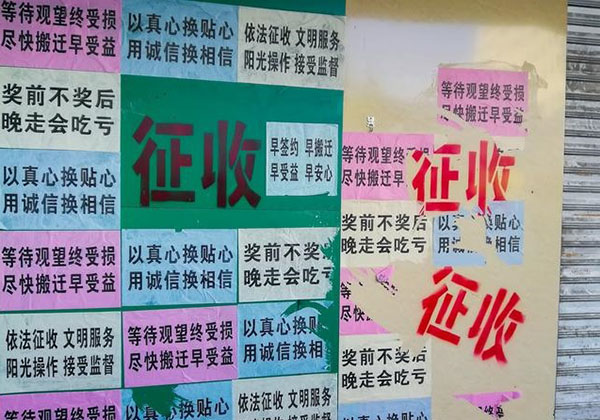 等待观望终受损
尽快搬迁早受益
以真心换贴心
用诚信换相信
依法征收 文明服务
阳光操作 接受监督
奖前不奖后
晚走会吃亏
征收
早签约 早搬迁
早受益 早安心
等待观望终受损
尽快搬迁早受益
等待观望终受损
尽快搬迁早
征收
以真心换贴心
用诚信换相信
奖前不奖后
晚走会吃亏
以
心
用
相信
等待观望终受损
尽快搬迁早受益
以真心换贴心
用诚信换相信
奖前不奖后
晚走会吃亏
征收
依法征收 文明服务
阳光操作 接受监督
等待观望终受损
尽快搬迁早受益
以真心换贴
用诚信换相信
奖前不奖后
晚走会吃亏
以真心换贴心
依法征收 文明服务